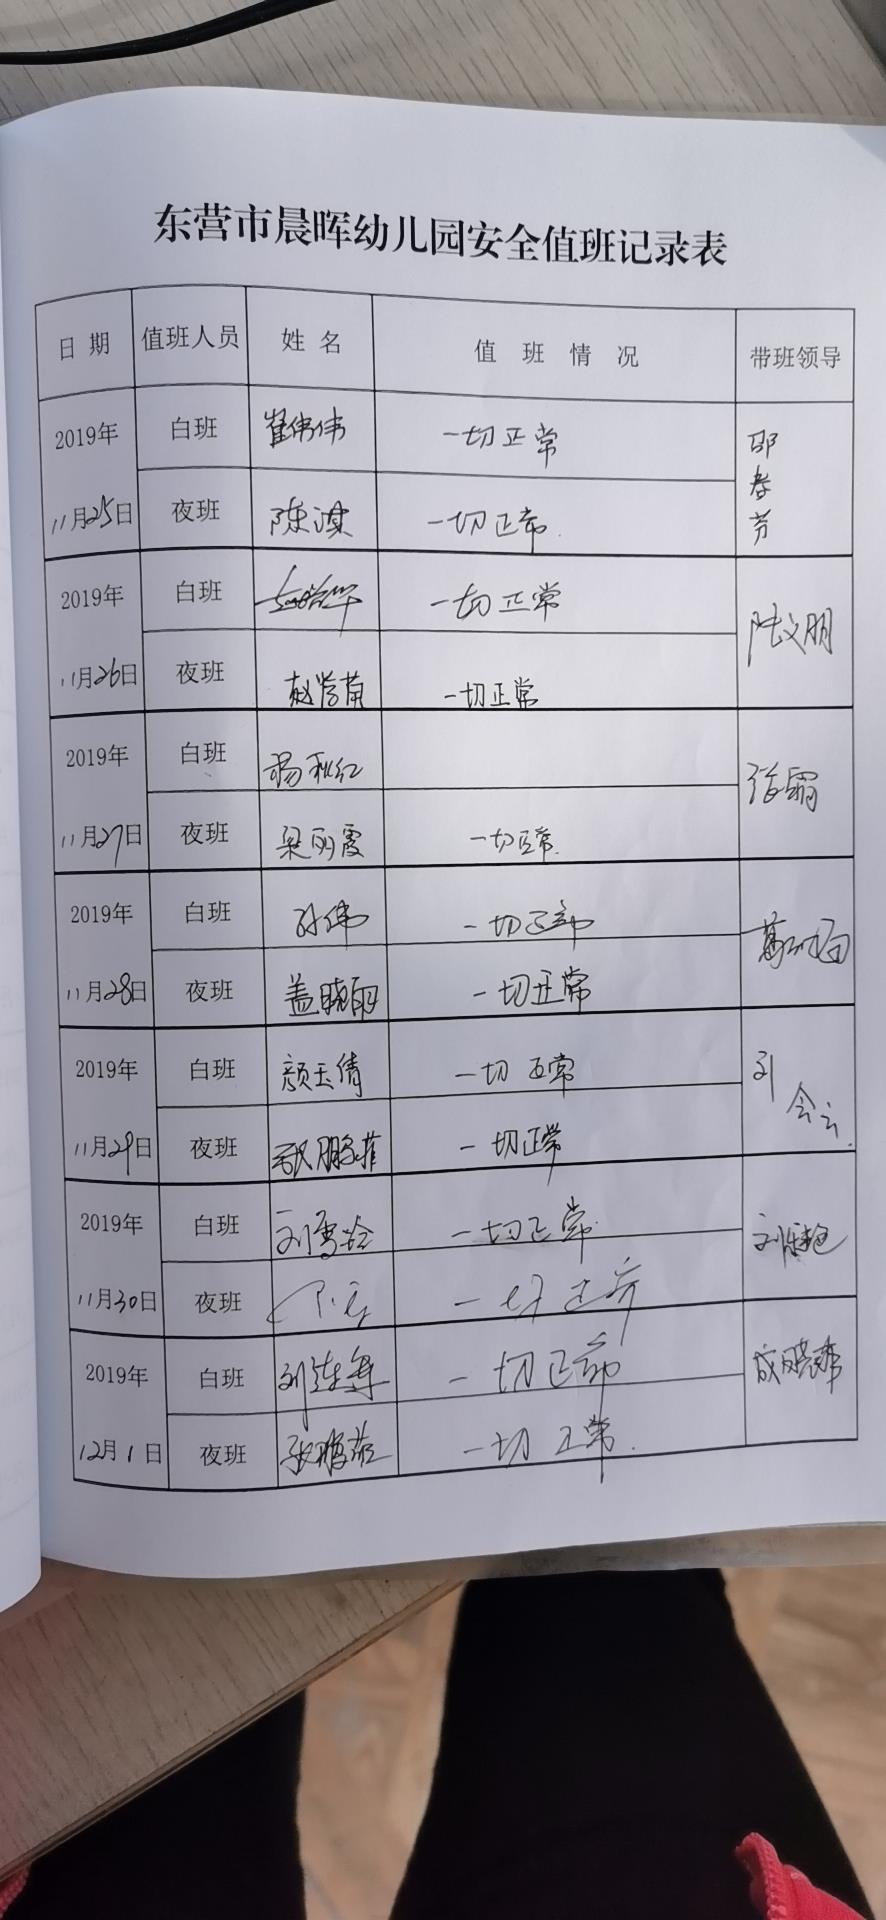 东营市晨晖幼儿园安全值班记录表
日期 值班人员 姓名 值班情况 带班领导
2019年 白班 崔伟伟 一切正常
11月25日 夜班 陈淇 一切正常.
邵春芳
2019年 白班 一切正常
11月26日 夜班 一切正常
陆文朋
2019年 白班 杨秋红
11月27日 夜班 梁丽霞 一切正常.
张霜
2019年 白班 孙伟 一切正常
11月28日 夜班 盖晓丽 一切正常
2019年 白班 颜玉倩 一切正常
11月29日 夜班 一切正常
刘会云.
2019年 白班 刘雪玲 一切正常.
11月30日 夜班 一切正常
2019年 白班 一切正常
12月1日 夜班 一切正常.